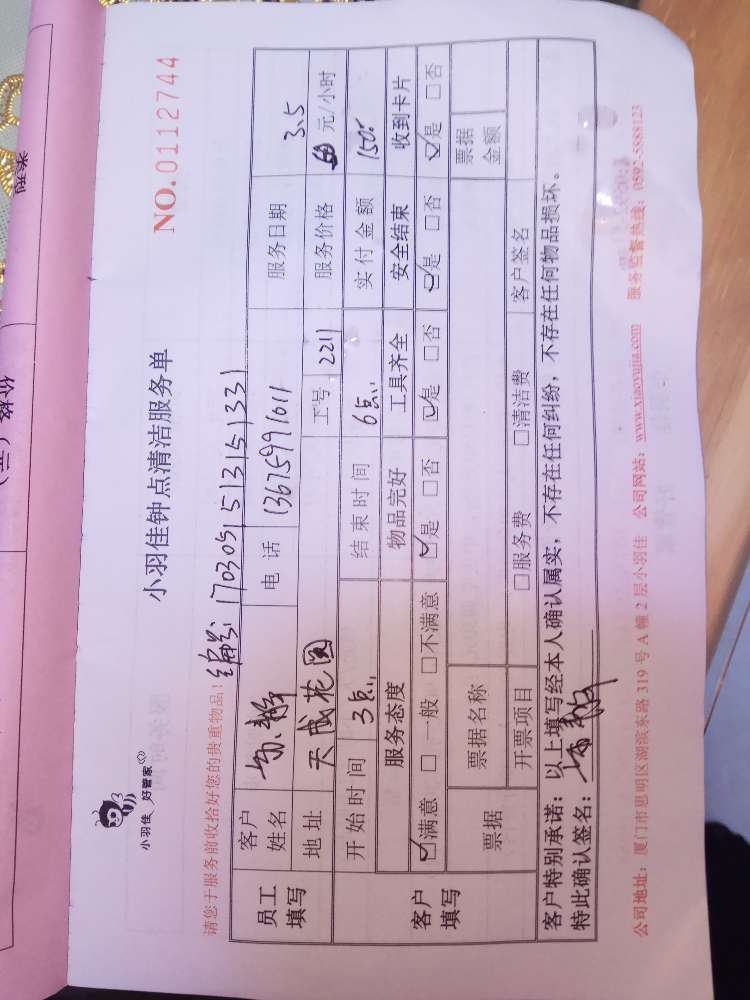 类型
价格（
小羽佳 好管家
小羽佳钟点清洁服务单
NO.0112744
请您于服务前收拾好您的贵重物品！
编号: 1703051513151331
员工填写 客户姓名 电话 13675991011 服务日期 3.5
地址 天成花园 工号 2211 服务价格 元/小时
客户填写 开始时间 3点 结束时间 6点 实付金额 150
服务态度 物品完好 工具齐全 安全结束 收到卡片
☑满意 □一般 □不满意 ☑是 □否 ☑是 □否 ☑是 □否 ☑是 □否
票据 票据名称 票据金额
开票项目 □服务费 □清洁费 客户签名
客户特别承诺：以上填写经本人确认属实，不存在任何纠纷，不存在任何物品损坏。
特此确认签名：
公司地址：厦门市思明区湖滨东路 319 号 A 幢 2 层小羽佳 公司网站：www.xiaoyujia.com 服务监督热线：0592-5888123